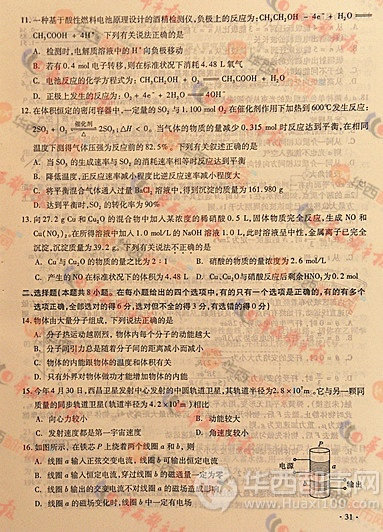 11. 一种基于酸性燃料电池原理设计的酒精检测仪,负极上的反应为:CH₃CH₂OH − 4e⁻ + H₂O ══
CH₃COOH + 4H⁺。下列有关说法正确的是
A. 检测时,电解质溶液中的 H⁺ 向负极移动
B. 若有 0.4 mol 电子转移,则在标准状况下消耗 4.48 L 氧气
C. 电池反应的化学方程式为: CH₃CH₂OH + O₂ ══ CH₃COOH + H₂O
D. 正极上发生的反应为: O₂ + 4e⁻ + 2H₂O ══ 4OH⁻
12. 在体积恒定的密闭容器中,一定量的 SO₂ 与 1.100 mol O₂ 在催化剂作用下加热到 600℃ 发生反应:
2SO₂ + O₂ 催化剂 2SO₃; ΔH < 0。当气体的物质的量减少 0.315 mol 时反应达到平衡,在相同
温度下测得气体压强为反应前的 82.5%。下列有关叙述正确的是
A. 当 SO₃ 的生成速率与 SO₂ 的消耗速率相等时反应达到平衡
B. 降低温度,正反应速率减小程度比逆反应速率减小程度大
C. 将平衡混合气体通入过量 BaCl₂ 溶液中,得到沉淀的质量为 161.980 g
D. 达到平衡时,SO₂ 的转化率为 90%
13. 向 27.2 g Cu 和 Cu₂O 的混合物中加入某浓度的稀硝酸 0.5 L,固体物质完全反应,生成 NO 和
Cu(NO₃)₂。在所得溶液中加入 1.0 mol/L 的 NaOH 溶液 1.0 L,此时溶液呈中性,金属离子已完全
沉淀,沉淀质量为 39.2 g。下列有关说法不正确的是
A. Cu 与 Cu₂O 的物质的量之比为 2∶1 B. 硝酸的物质的量浓度为 2.6 mol/L
C. 产生的 NO 在标准状况下的体积为 4.48 L D. Cu、Cu₂O 与硝酸反应后剩余 HNO₃ 为 0.2 mol
二、选择题(本题共 8 小题。在每小题给出的四个选项中,有的只有一个选项是正确的,有的有多个
选项正确,全部选对的得 6 分,选对但不全的得 3 分,有选错的得 0 分)
14. 物体由大量分子组成,下列说法正确的是
A. 分子热运动越剧烈,物体内每个分子的动能越大
B. 分子间引力总是随着分子间的距离减小而减小
C. 物体的内能跟物体的温度和体积有关
D. 只有外界对物体做功才能增加物体的内能
15. 今年 4 月 30 日,西昌卫星发射中心发射的中圆轨道卫星,其轨道半径为 2.8×10⁷m。它与另一颗同
质量的同步轨道卫星(轨道半径为 4.2×10⁷m)相比
A. 向心力较小 B. 动能较大
C. 发射速度都是第一宇宙速度 D. 角速度较小
16. 如图所示,在铁芯 P 上绕着两个线圈 a 和 b,则
A. 线圈 a 输入正弦交变电流,线圈 b 可输出恒定电流
B. 线圈 a 输入恒定电流,穿过线圈 b 的磁通量一定为零
C. 线圈 b 输出的交变电流不对线圈 a 的磁场造成影响
D. 线圈 a 的磁场变化时,线圈 b 中一定有电场
P
电源
a
b
输出
· 31 ·
华西都市网
www.Huaxi100.com